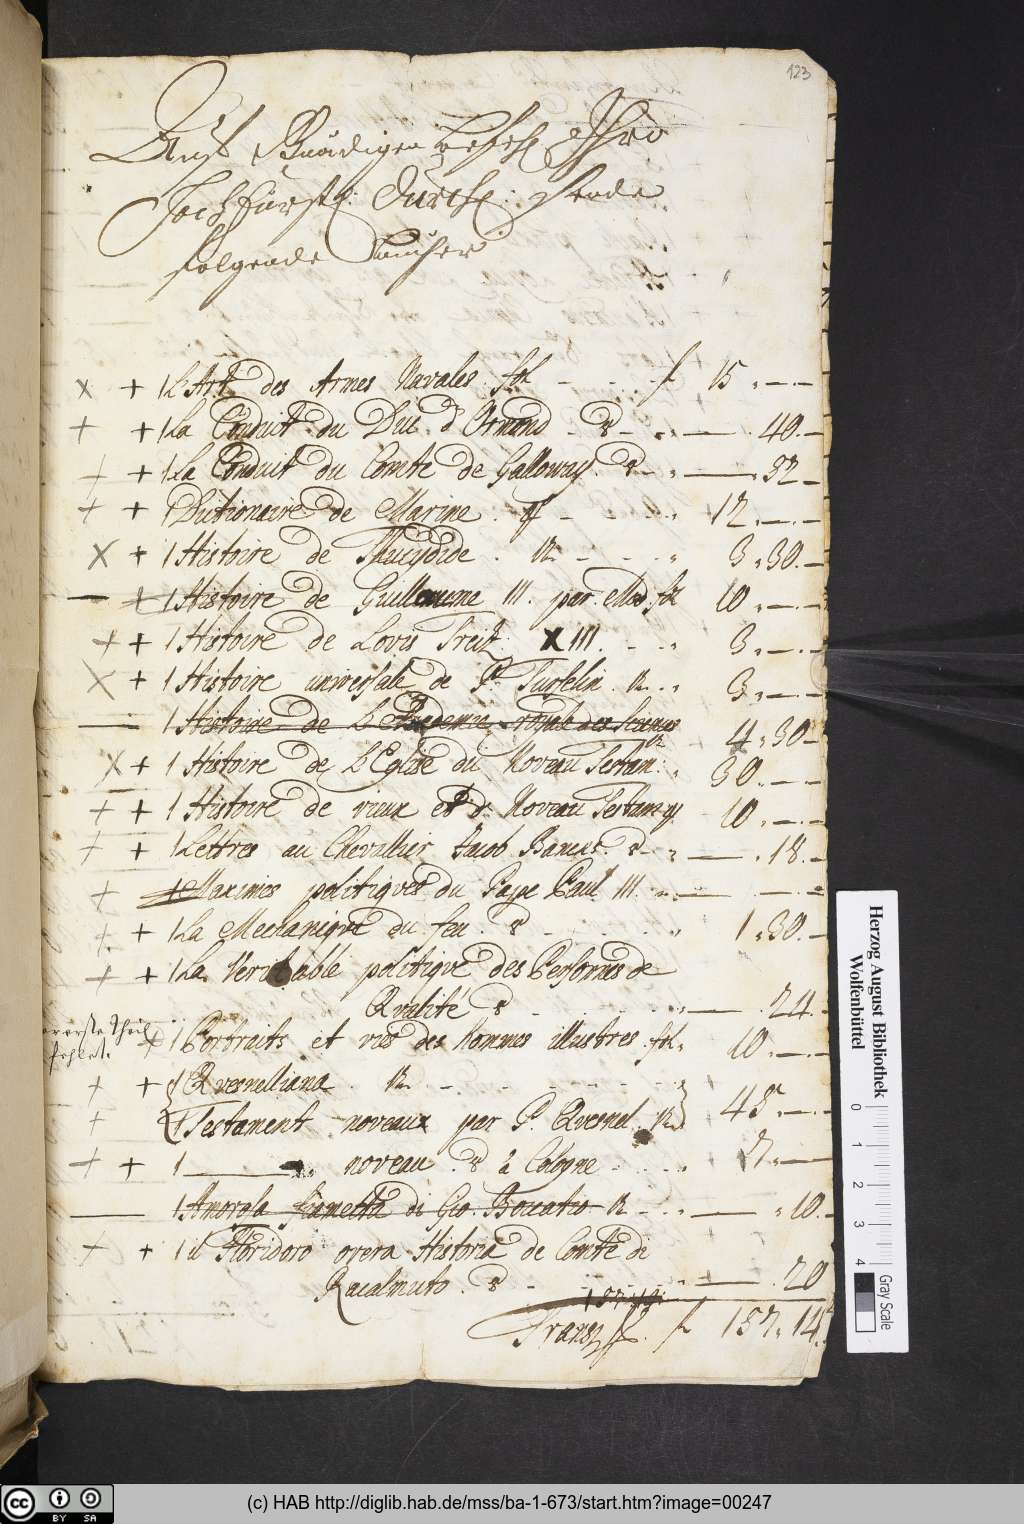 123
Auf Gnädigen Befehl Ihro
Hochfürstl: Durchl: sende
folgende Bücher
x + 1 L'Art des Armes Navales. fol - - - f 15. - -
+ + 1 La Conduit du Duc d'Ormond - 8 - - 40. -
+ + 1 La Conduit du Comte de Galloway. 8 - - 32 -
+ + 1 Dictionaire de Marine. 4 - - 12. - -
x + 1 Histoire de Thucydide. 12 - - 3. 30. -
+ 1 Histoire de Guillaume III. par fol 10. - -
+ + 1 Histoire de Lovis Treiz. XIII. - - 3. - -
x + 1 Histoire universale de P. Turselin. 12. 3. - -
1 Histoire de L'Academie royale des Sciences
4. 30 -
x + 1 Histoire de L'Eglise du Noveau Testam: 30. - -
+ + 1 Histoire de vieux et d. Noveau Testam. 4 10. - -
+ + 1 Lettres au Chevallier Jacob Bancks. 8 - 18. -
+ + Maximes politiques du Pape Paul III. - - -
+ + 1 La Mechanique du feu. 8 - - 1. 30. -
+ + 1 La Veritable politique des Personnes de
Qvalité 8 - - 24. -
erste Theil
fehlet.
x 1 Portraits et vies des hommes illustres. fol. 10. - -
+ + 1 Qvesnelliana. 12. - - -
+ 1 Testament noveaux par P. Qvesnel. 12. 45. - -
+ + 1 noveau. 8 à Cologne - - 7. -
1 Amorosa fiametta di Gio. Boccatio 12 - - 10. -
+ + 1 il Floridoro overa Historia de Comte di
Racalmuto. 8 - - 20
Transp. f 157. 14.
Herzog August Bibliothek
Wolfenbüttel
0 1 2 3 4
Gray Scale
cc BY SA
(c) HAB http://diglib.hab.de/mss/ba-1-673/start.htm?image=00247